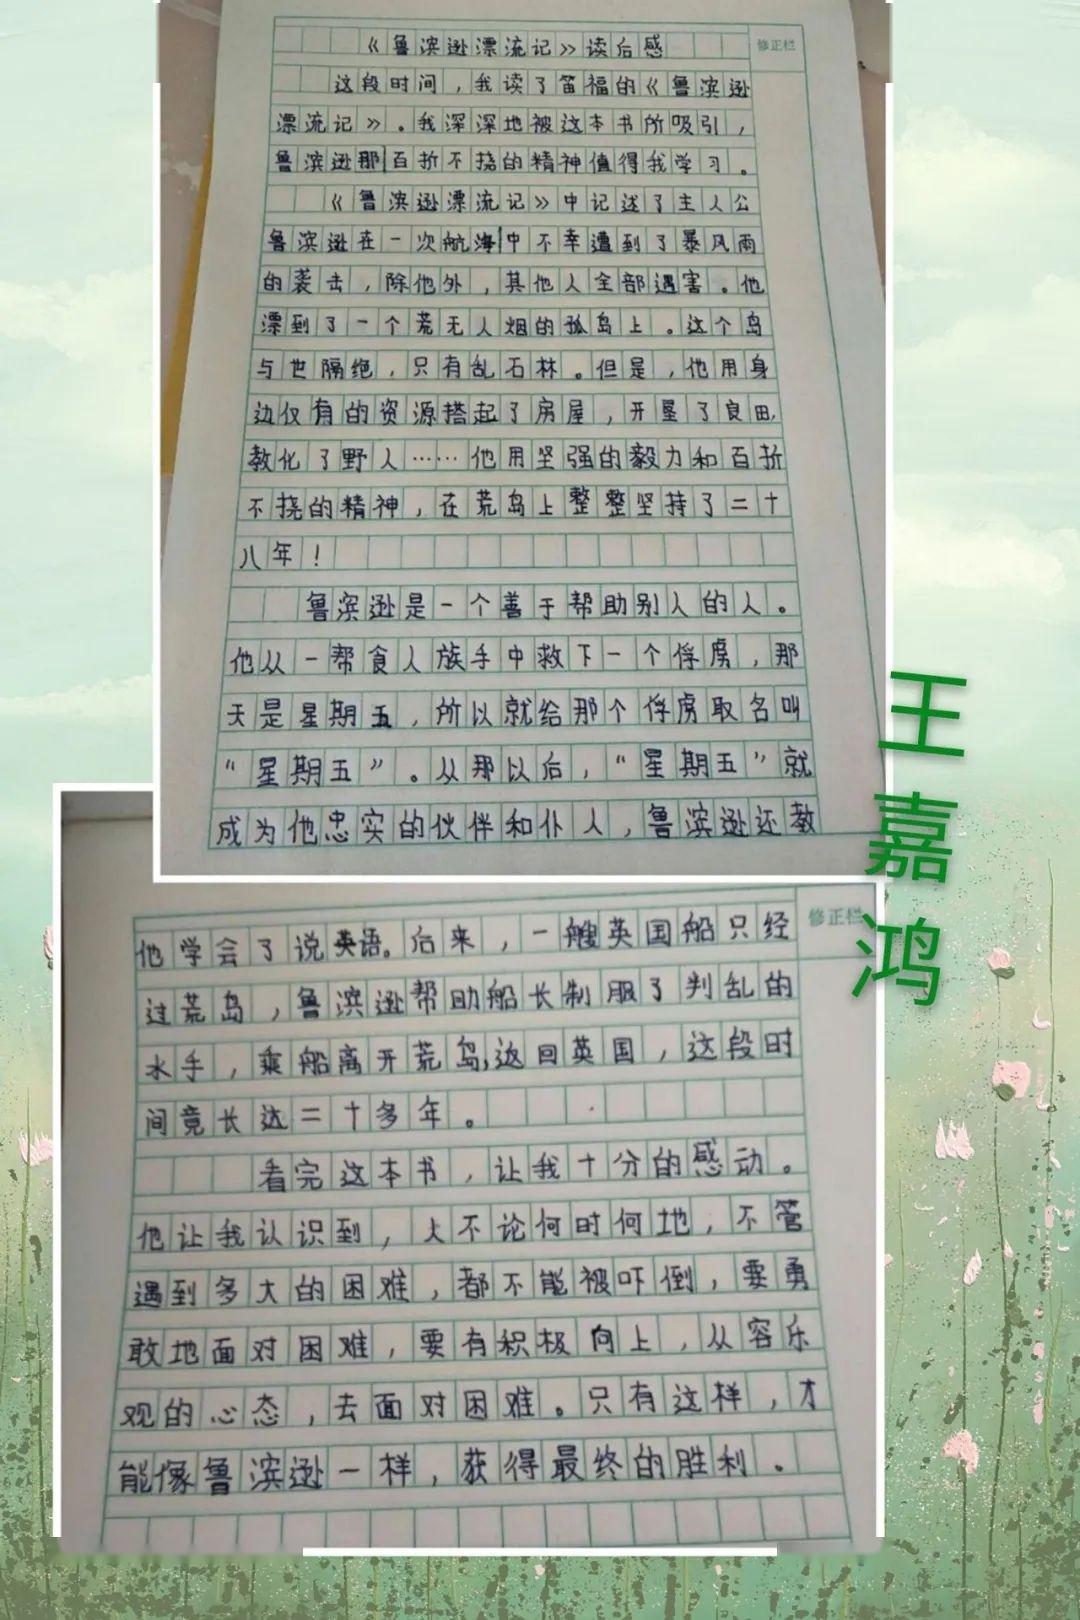 《鲁滨逊漂流记》读后感
修正栏
这段时间，我读了笛福的《鲁滨逊
漂流记》。我深深地被这本书所吸引，
鲁滨逊那百折不挠的精神值得我学习。
《鲁滨逊漂流记》中记述了主人公
鲁滨逊在一次航海中不幸遭到了暴风雨
的袭击，除他外，其他人全部遇害。他
漂到了一个荒无人烟的孤岛上。这个岛
与世隔绝，只有乱石林。但是，他用身
边仅有的资源搭起了房屋，开垦了良田，
教化了野人……他用坚强的毅力和百折
不挠的精神，在荒岛上整整坚持了二十
八年！
鲁滨逊是一个善于帮助别人的人。
他从一帮食人族手中救下一个俘虏，那
天是星期五，所以就给那个俘虏取名叫
“星期五”。从那以后，“星期五”就
成为他忠实的伙伴和仆人，鲁滨逊还教
王嘉鸿
修正栏
他学会了说英语。后来，一艘英国船只经
过荒岛，鲁滨逊帮助船长制服了判乱的
水手，乘船离开荒岛，返回英国，这段时
间竟长达二十多年。
看完这本书，让我十分的感动。
他让我认识到，人不论何时何地，不管
遇到多大的困难，都不能被吓倒，要勇
敢地面对困难，要有积极向上，从容乐
观的心态，去面对困难。只有这样，才
能像鲁滨逊一样，获得最终的胜利。